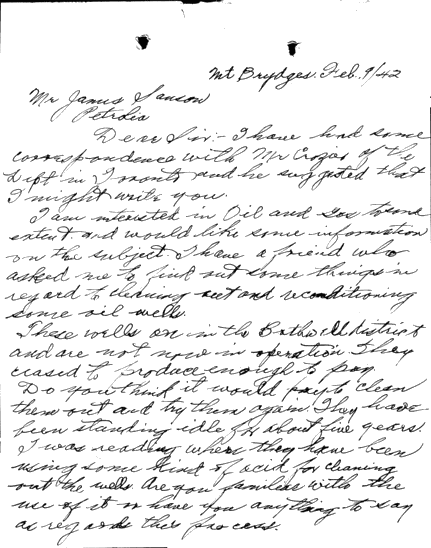 Mt Brydges. Feb. 9/42
Mr James Sanson
Petrolia
Dear Sir:- I have had some
correspondence with Mr Crozier of the
Dept in Toronto and he suggested that
I might write you.
I am interested in Oil and Gas to some
extent and would like some information
on the subject. I have a friend who
asked me to find out some things in
regard to cleaning out and reconditioning
some oil wells.
These wells are in the Bothwell district
and are not now in operation They
ceased to produce enough to pay
Do you think it would pay to clean
them out and try them again. They have
been standing idle for about five years.
I was reading where they have been
using some kind of acid for cleaning
out the wells. Are you familiar with the
use of it or have you anything to say
as regards this process.